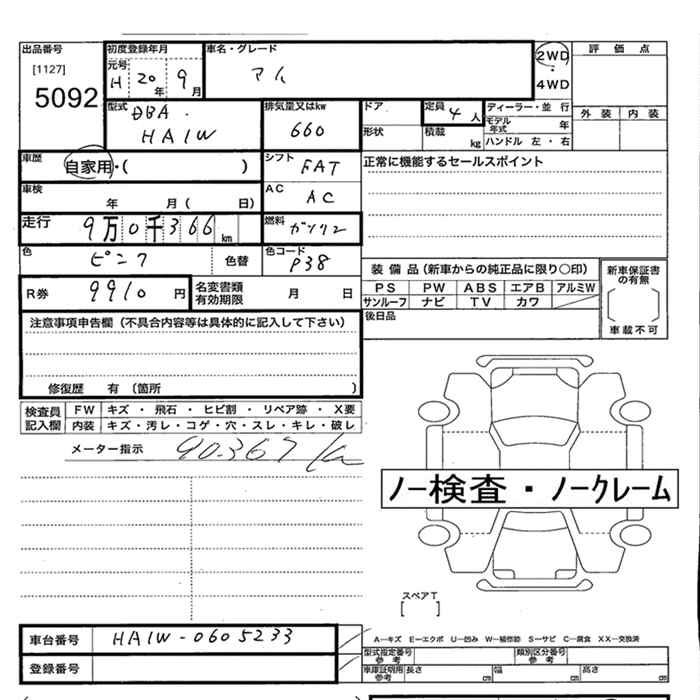 出品番号
[1127]
5092
初度登録年月
元号
H 20年 9月
車名・グレード
2WD
・
4WD
評価点
外装 内装
型式
DBA
HA1W
排気量又はkw
660
ドア
形状
定員
4人
積載
kg
ディーラー・並行
モデル年式 年
ハンドル 左・右
車歴
自家用・( )
シフト
FAT
正常に機能するセールスポイント
車検
年 月( 日)
AC
AC
走行
9万0千366km
燃料
ガソリン
色
ピンク
色替
色コード
P38
R券
9910円
名変書類
有効期限
月 日
装備品(新車からの純正品に限り〇印)
PS PW ABS エアB アルミW
サンルーフ ナビ TV カワ
新車保証書
の有無
車載不可
後日品
注意事項申告欄(不具合内容等は具体的に記入して下さい)
修復歴 有 (箇所 )
検査員
記入欄
FW キズ・飛石・ヒビ割・リペア跡・X要
内装 キズ・汚レ・コゲ・穴・スレ・キレ・破レ
メーター指示
90.367 km
ノー検査・ノークレーム
スペアT
[ ]
車台番号
HA1W-0605233
登録番号
A―キズ E―エクボ U―凹み W―補修跡 S―サビ C―腐食 XX―交換済
型式指定番号
参考
類別区分番号
参考
車庫証明用
参考
長さ cm
幅 cm
高さ cm